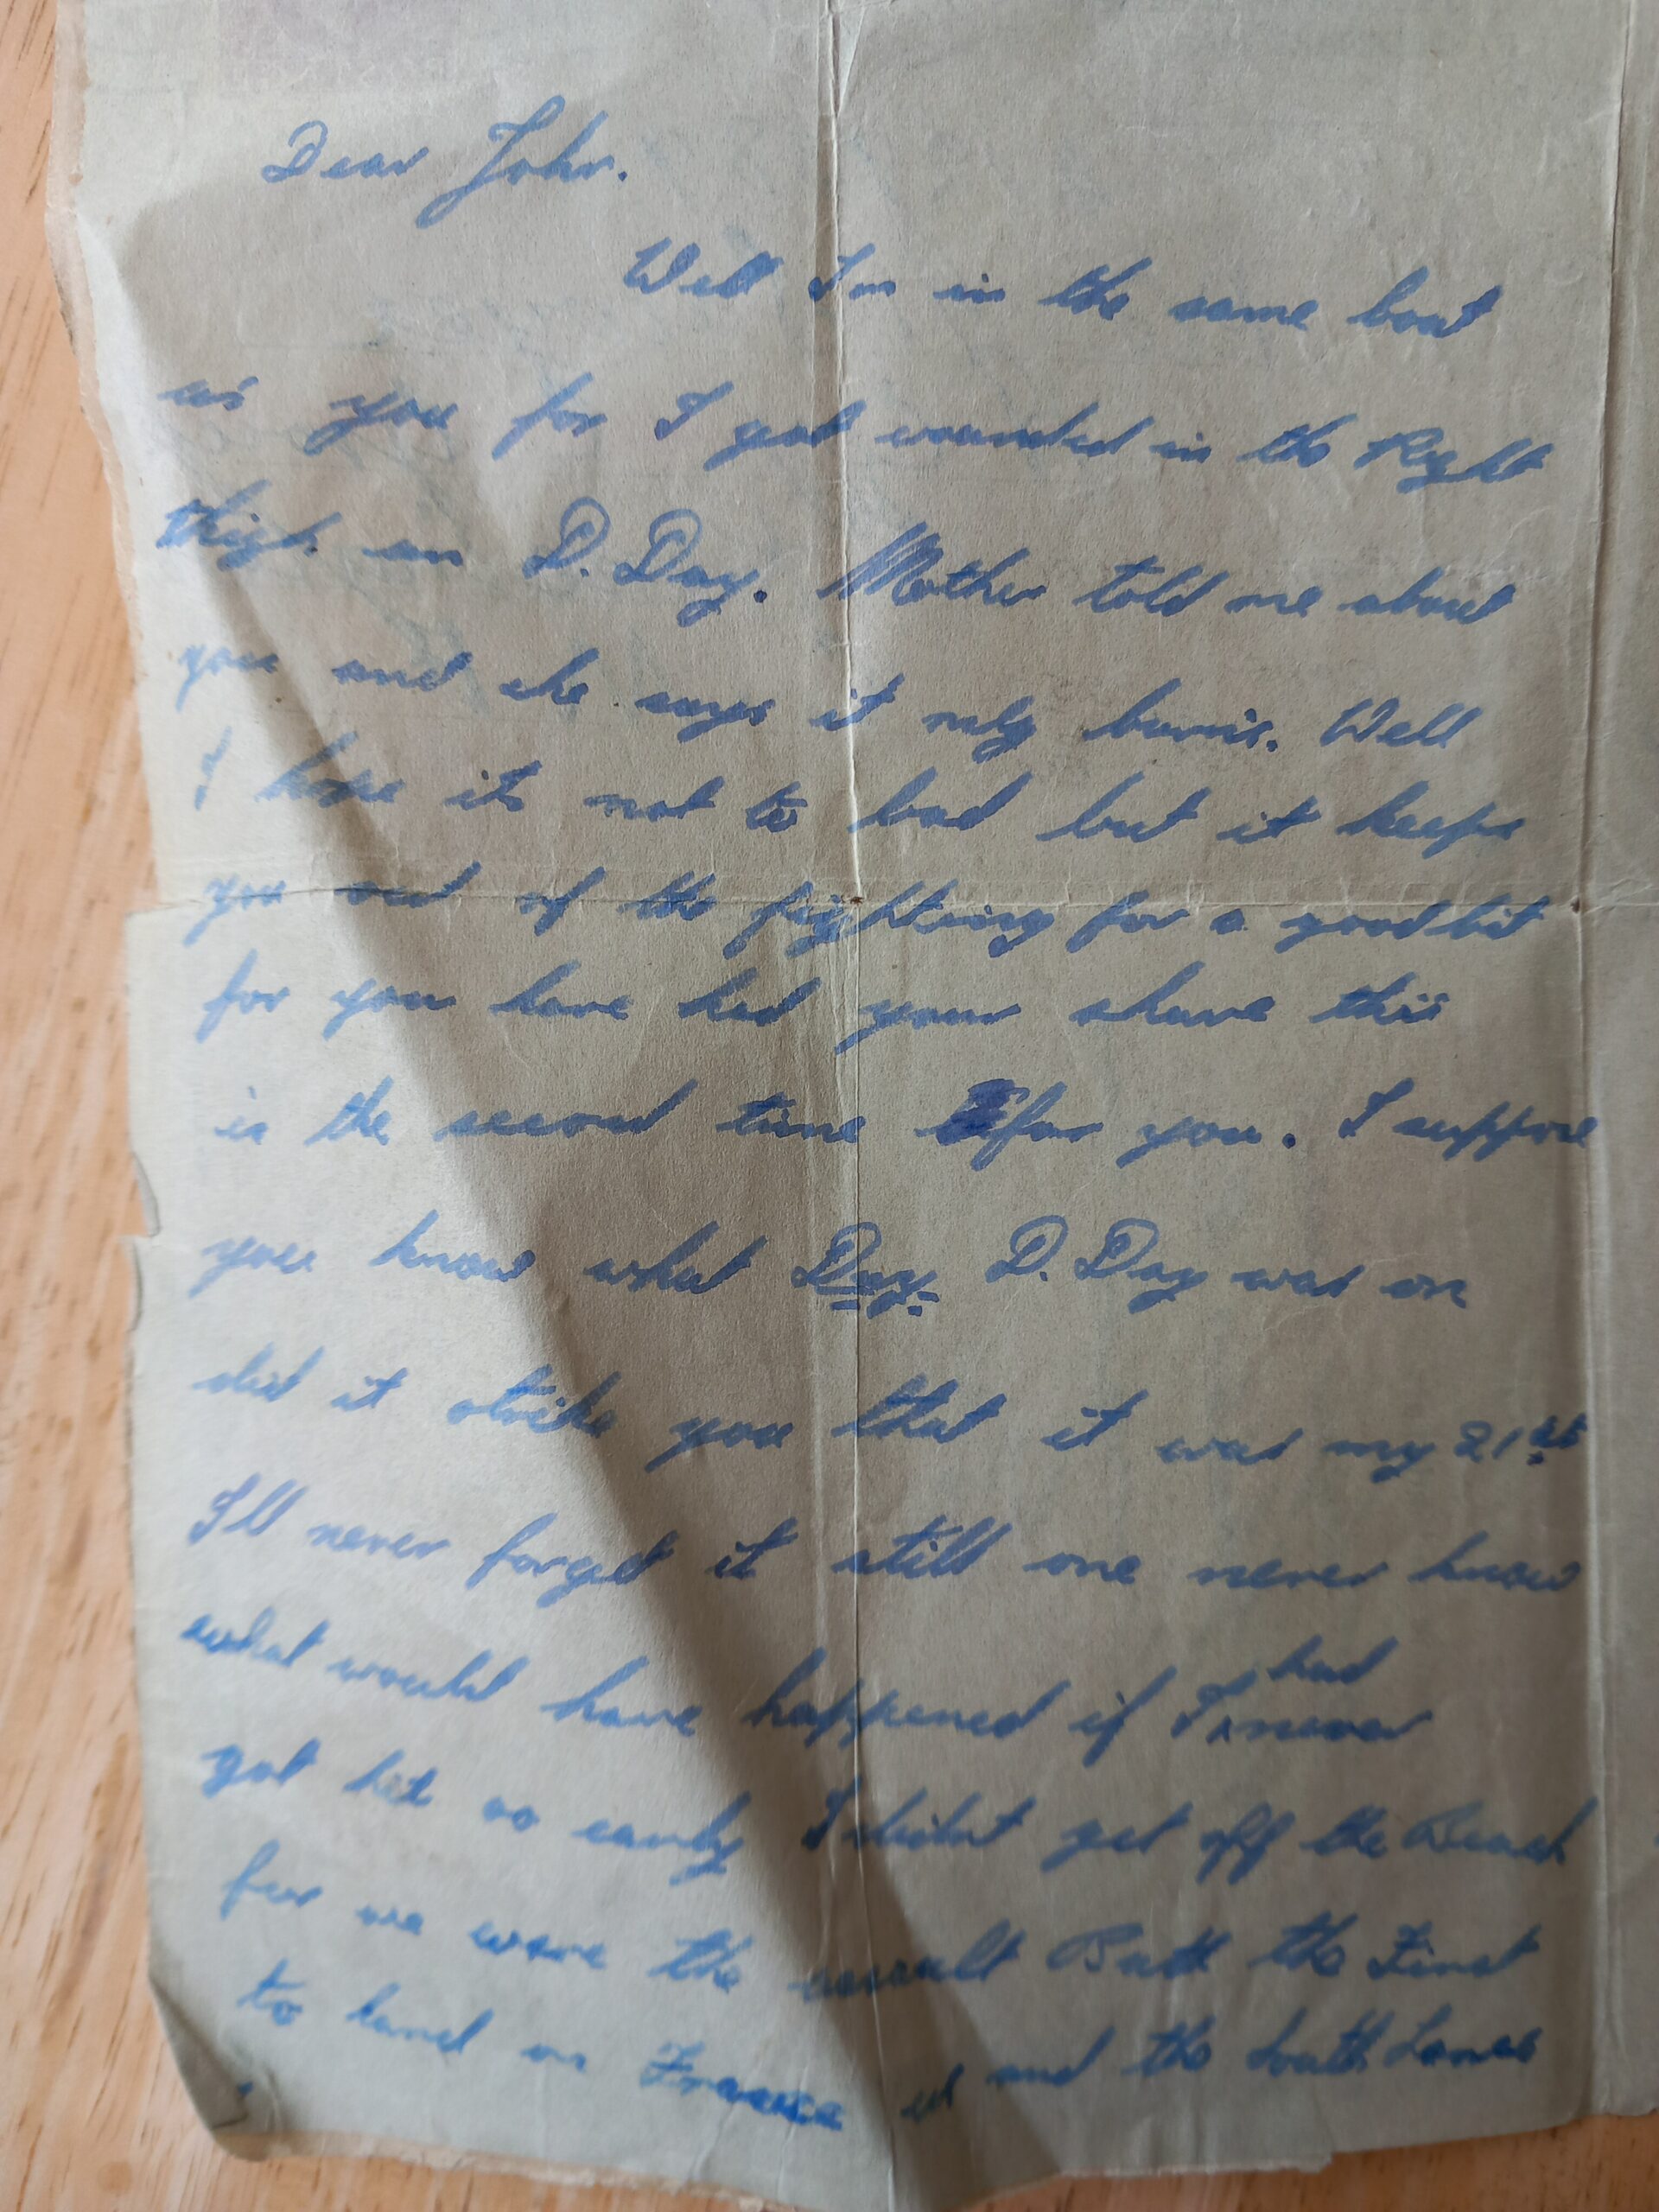 Dear John.
Well Im in the same boat
as you for I got wounded in the Right
thigh on D. Day. Mother told me about
you and she says it only burns. Well
I hope its not to bad but it keeps
you out of the fighting for a good bit
for you have had your share this
is the second time for you. I suppose
you know what Day. D. Day was on
did it strike you that it was my 21st
I'll never forget it still one never know
what would have happened if I had never
got hit so early I didnt get off the Beach
for we were the assault Batt the First
to land in France us and the South Lancs